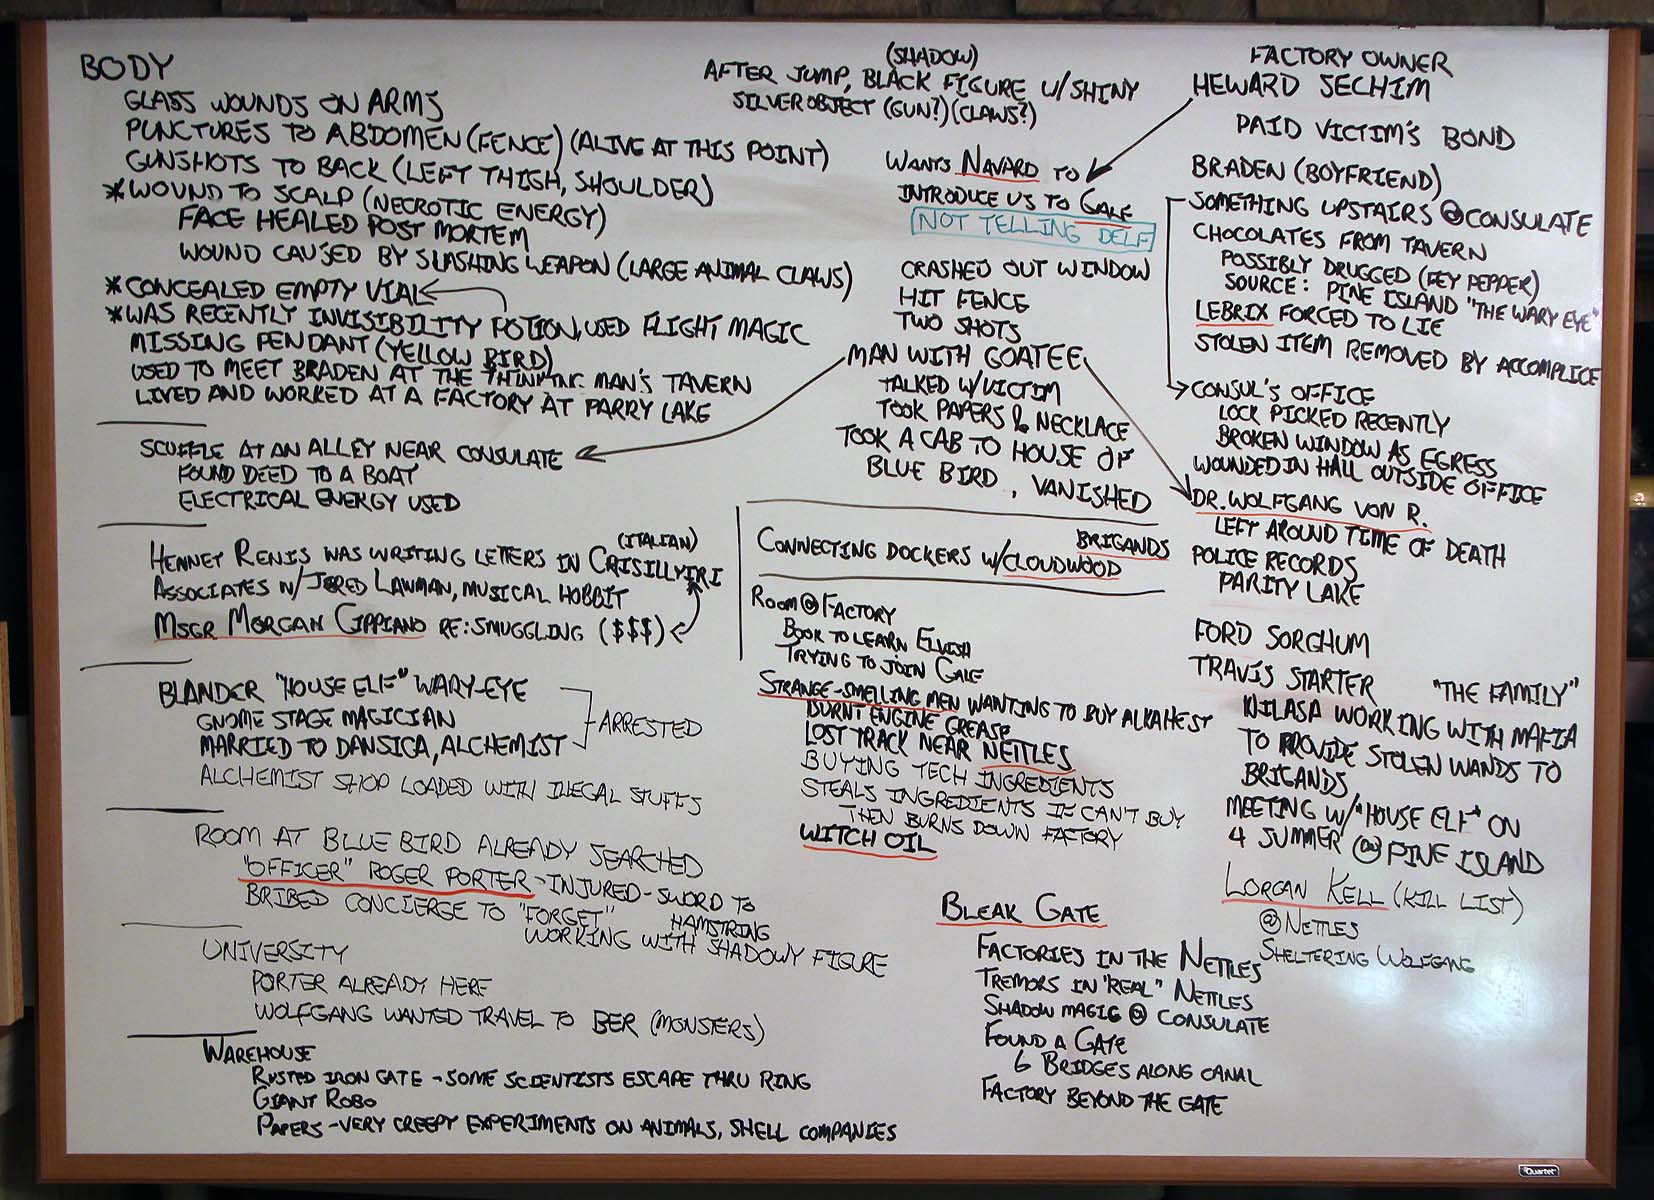 BODY
GLASS WOUNDS ON ARMS
PUNCTURES TO ABDOMEN (FENCE) (ALIVE AT THIS POINT)
GUNSHOTS TO BACK (LEFT THIGH, SHOULDER)
*WOUND TO SCALP (NECROTIC ENERGY)
FACE HEALED POST MORTEM
WOUND CAUSED BY SLASHING WEAPON (LARGE ANIMAL CLAWS)
*CONCEALED EMPTY VIAL
*WAS RECENTLY INVISIBILITY POTION, USED FLIGHT MAGIC
MISSING PENDANT (YELLOW BIRD)
USED TO MEET BRADEN AT THE THINKING MAN'S TAVERN
LIVED AND WORKED AT A FACTORY AT PARRY LAKE
SCUFFLE AT AN ALLEY NEAR CONSULATE
FOUND DEED TO A BOAT
ELECTRICAL ENERGY USED
(ITALIAN)
HENNET RENIS WAS WRITING LETTERS IN CRISILLYIRI
ASSOCIATES W/ JERED LAWMAN, MUSICAL HOBBIT
MSGR MORGAN CIPPIANO RE: SMUGGLING ($$$)
BLANDER "HOUSE ELF" WARY-EYE
GNOME STAGE MAGICIAN
MARRIED TO DANSICA, ALCHEMIST
ARRESTED
ALCHEMIST SHOP LOADED WITH ILLEGAL STUFFS
ROOM AT BLUE BIRD ALREADY SEARCHED
"OFFICER" ROGER PORTER - INJURED - SWORD TO
HAMSTRING
BRIBED CONCIERGE TO "FORGET"
WORKING WITH SHADOWY FIGURE
UNIVERSITY
PORTER ALREADY HERE
WOLFGANG WANTED TRAVEL TO BER (MONSTERS)
WAREHOUSE
RUSTED IRON GATE - SOME SCIENTISTS ESCAPE THRU RING
GIANT ROBO
PAPERS - VERY CREEPY EXPERIMENTS ON ANIMALS, SHELL COMPANIES
(SHADOW)
AFTER JUMP, BLACK FIGURE W/ SHINY
SILVER OBJECT (GUN?) (CLAWS?)
WANTS NAVARD TO
INTRODUCE US TO GALE
NOT TELLING DELF
CRASHED OUT WINDOW
HIT FENCE
TWO SHOTS
MAN WITH GOATEE
TALKED W/ VICTIM
TOOK PAPERS & NECKLACE
TOOK A CAB TO HOUSE OF
BLUE BIRD, VANISHED
BRIGANDS
CONNECTING DOCKERS W/ CLOUDWOOD
ROOM @ FACTORY
BOOK TO LEARN ELVISH
TRYING TO JOIN GALE
STRANGE-SMELLING MEN WANTING TO BUY ALKAHEST
BURNT ENGINE GREASE
LOST TRACK NEAR NETTLES
BUYING TECH INGREDIENTS
STEALS INGREDIENTS IF CAN'T BUY
THEN BURNS DOWN FACTORY
WITCH OIL
BLEAK GATE
FACTORIES IN THE NETTLES
TREMORS IN "REAL" NETTLES
SHADOW MAGIC @ CONSULATE
FOUND A GATE
6 BRIDGES ALONG CANAL
FACTORY BEYOND THE GATE
FACTORY OWNER
HEWARD SECHIM
PAID VICTIM'S BOND
BRADEN (BOYFRIEND)
SOMETHING UPSTAIRS @ CONSULATE
CHOCOLATES FROM TAVERN
POSSIBLY DRUGGED (FEY PEPPER)
SOURCE: PINE ISLAND "THE WARY EYE"
LEBRIX FORCED TO LIE
STOLEN ITEM REMOVED BY ACCOMPLICE
CONSUL'S OFFICE
LOCK PICKED RECENTLY
BROKEN WINDOW AS EGRESS
WOUNDED IN HALL OUTSIDE OFFICE
DR. WOLFGANG VON R.
LEFT AROUND TIME OF DEATH
POLICE RECORDS
PARITY LAKE
FORD SORGHUM
TRAVIS STARTER "THE FAMILY"
NILASA WORKING WITH MAFIA
TO PROVIDE STOLEN WANDS TO
BRIGANDS
MEETING W/ "HOUSE ELF" ON
4 SUMMER @ PINE ISLAND
LORCAN KELL (KILL LIST)
@ NETTLES
SHELTERING WOLFGANG
Quartet